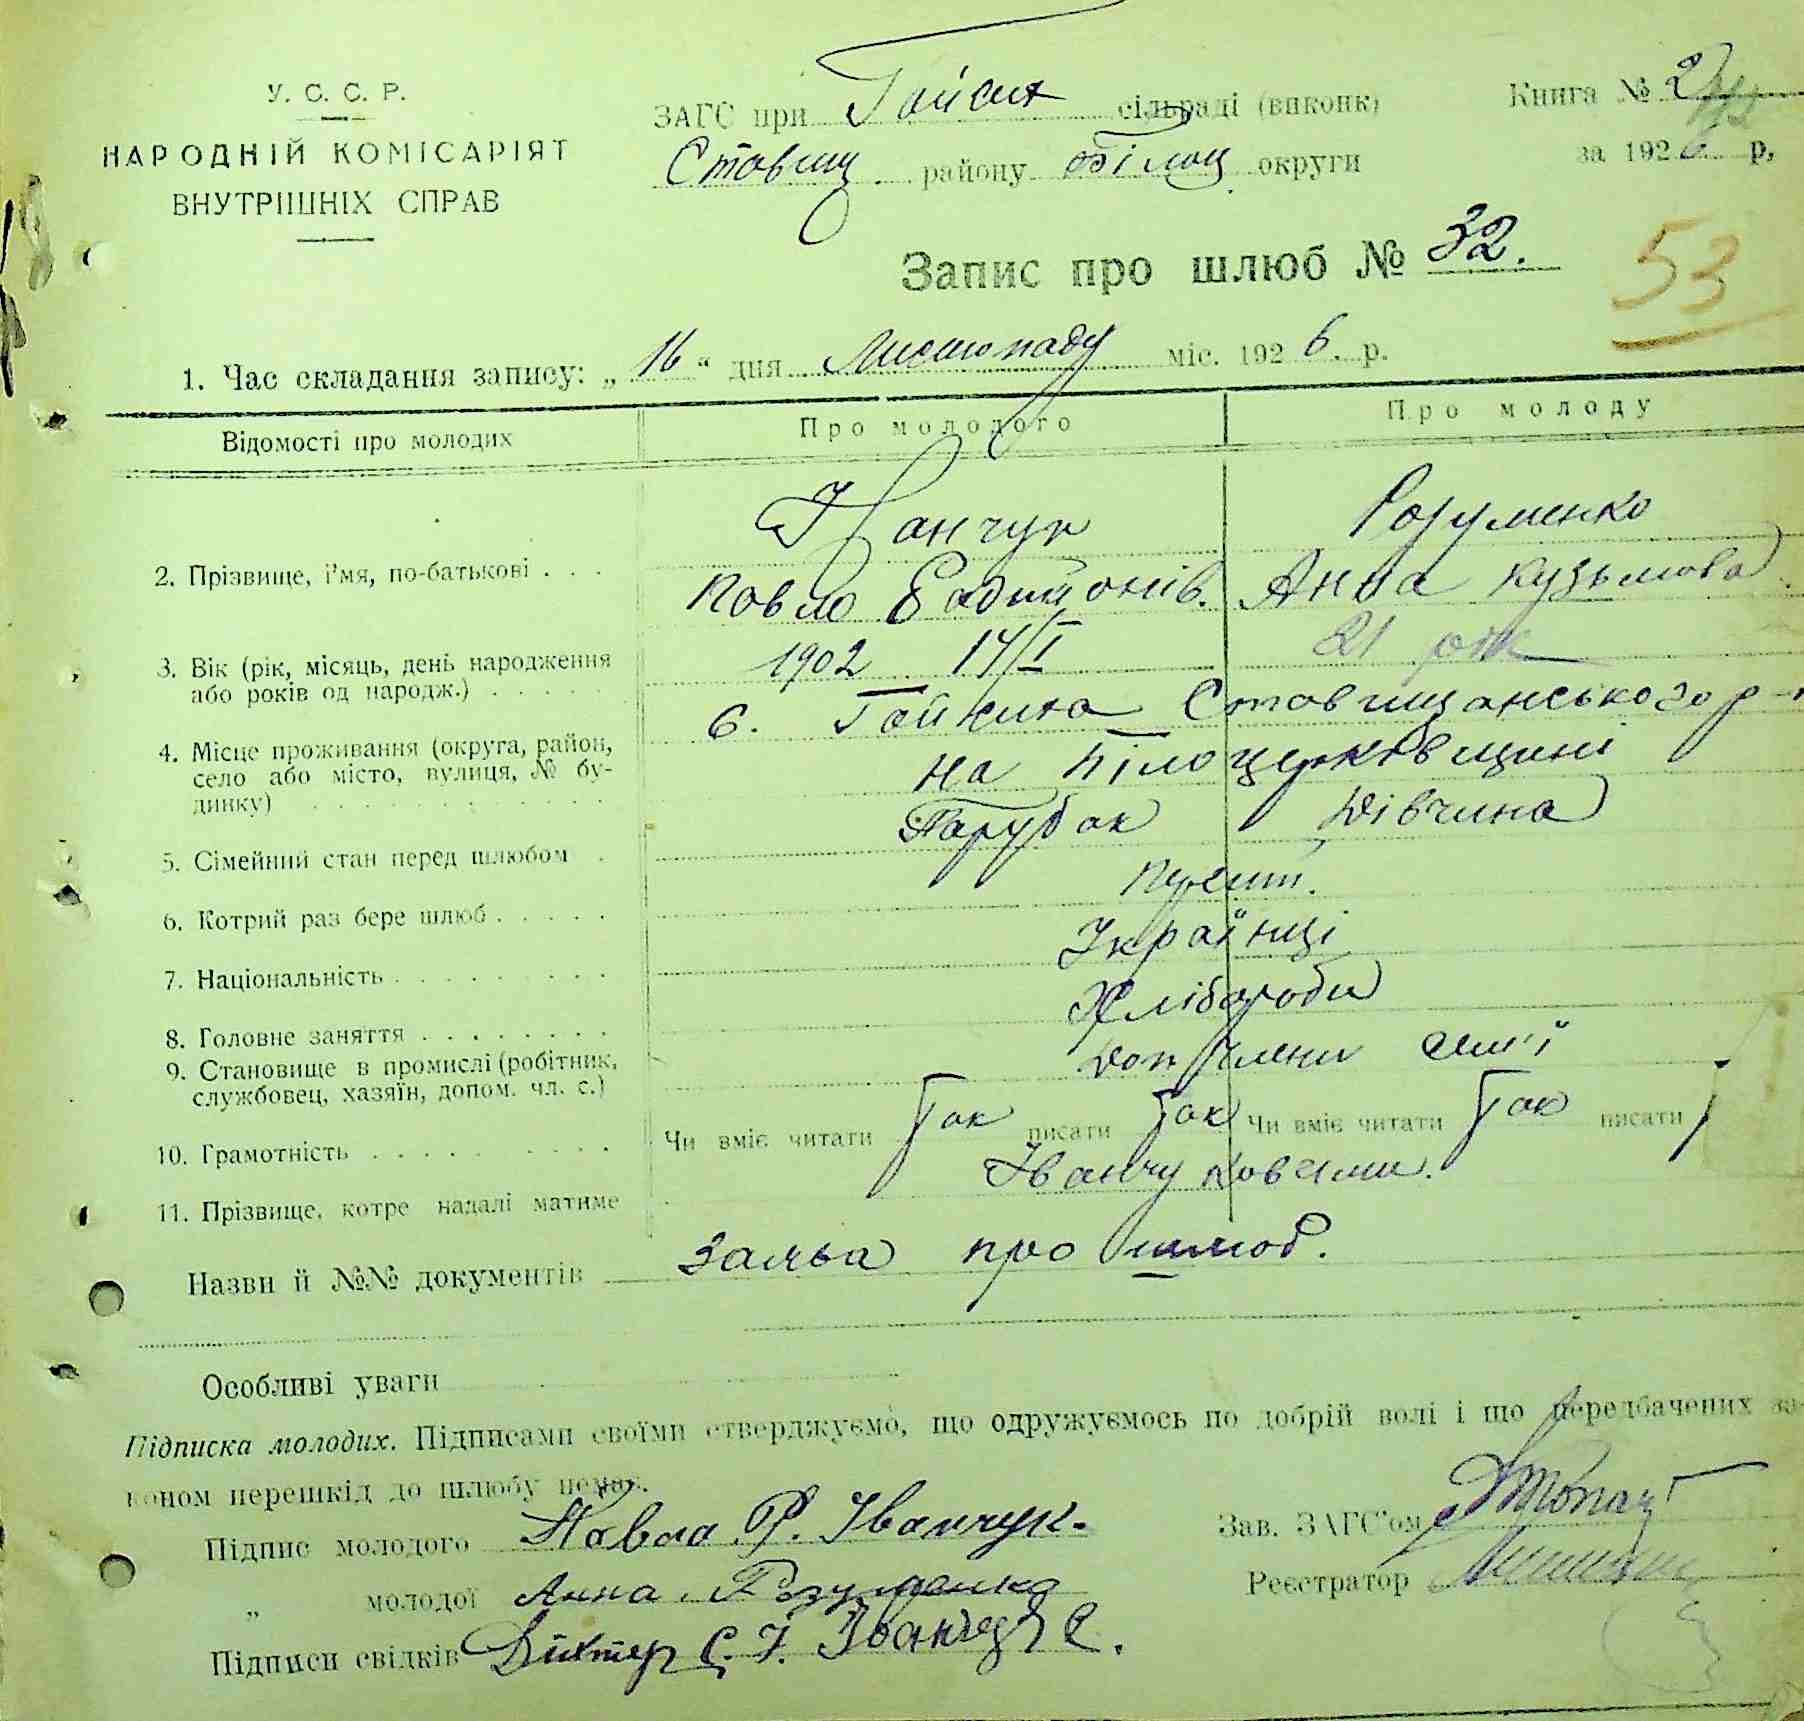 У. С. С. Р.
НАРОДНІЙ КОМІСАРІЯТ
ВНУТРІШНІХ СПРАВ
ЗАГС при сільраді (виконк)
Ставищ району Білоц округи
Книга № 2
за 1926 р.
Запис про шлюб № 32.
53
1. Час складання запису: „16“ дня Листопаду міс. 1926. р.
Відомості про молодих Про молодого Про молоду
2. Прізвище, і'мя, по-батькові . . .
Іванчук Розуменко
Павло Анна Кузьмова
3. Вік (рік, місяць, день народження
або років од народж.) . . . . .
1902 14/I 21 рік
4. Місце проживання (округа, район,
село або місто, вулиця, № бу-
динку) . . . . . . . . . . .
с. Гейсиха Ставищанського р-н
на Білоцерківщині
5. Сімейний стан перед шлюбом .
Парубок Дівчина
6. Котрий раз бере шлюб . . . . .
7. Національність . . . . . . . .
Українці
8. Головне заняття . . . . . . .
Хлібороби
9. Становище в промислі (робітник,
службовец, хазяїн, допом. чл. с.)
доп члени сем'ї
10. Грамотність . . . . . . . . .
Чи вміє читати Так писати Так Чи вміє читати Так писати
11. Прізвище, котре надалі матиме
Іванчуковями.
Назви й №№ документів заява про шлюб.
Особливі уваги
Підписка молодих. Підписами своїми стверджуємо, що одружуємось по добрій волі і що передбачених за-
коном перешкід до шлюбу немає.
Підпис молодого Павло Р. Іванчук.
„ молодої Анна Розуменко
Підписи свідків
Зав. ЗАГС'ом
Реєстратор